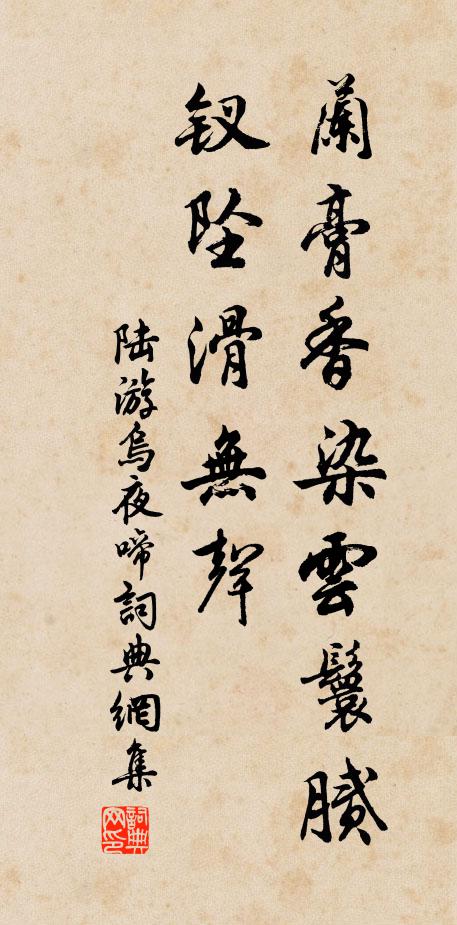 蘭膏香染雲鬟膩
釵墜滑無聲
陆游烏夜啼詞典網集
詞典网印